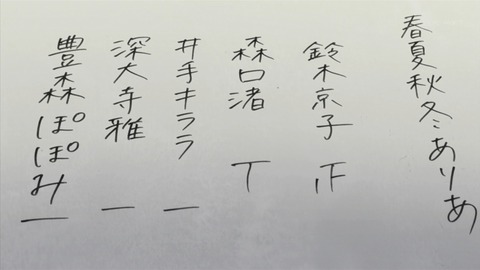 春夏秋冬ありあ
鈴木京子 𝍵
森口渚 丅
井手キララ 一
深大寺雅 一
豊森ぽぽみ 一